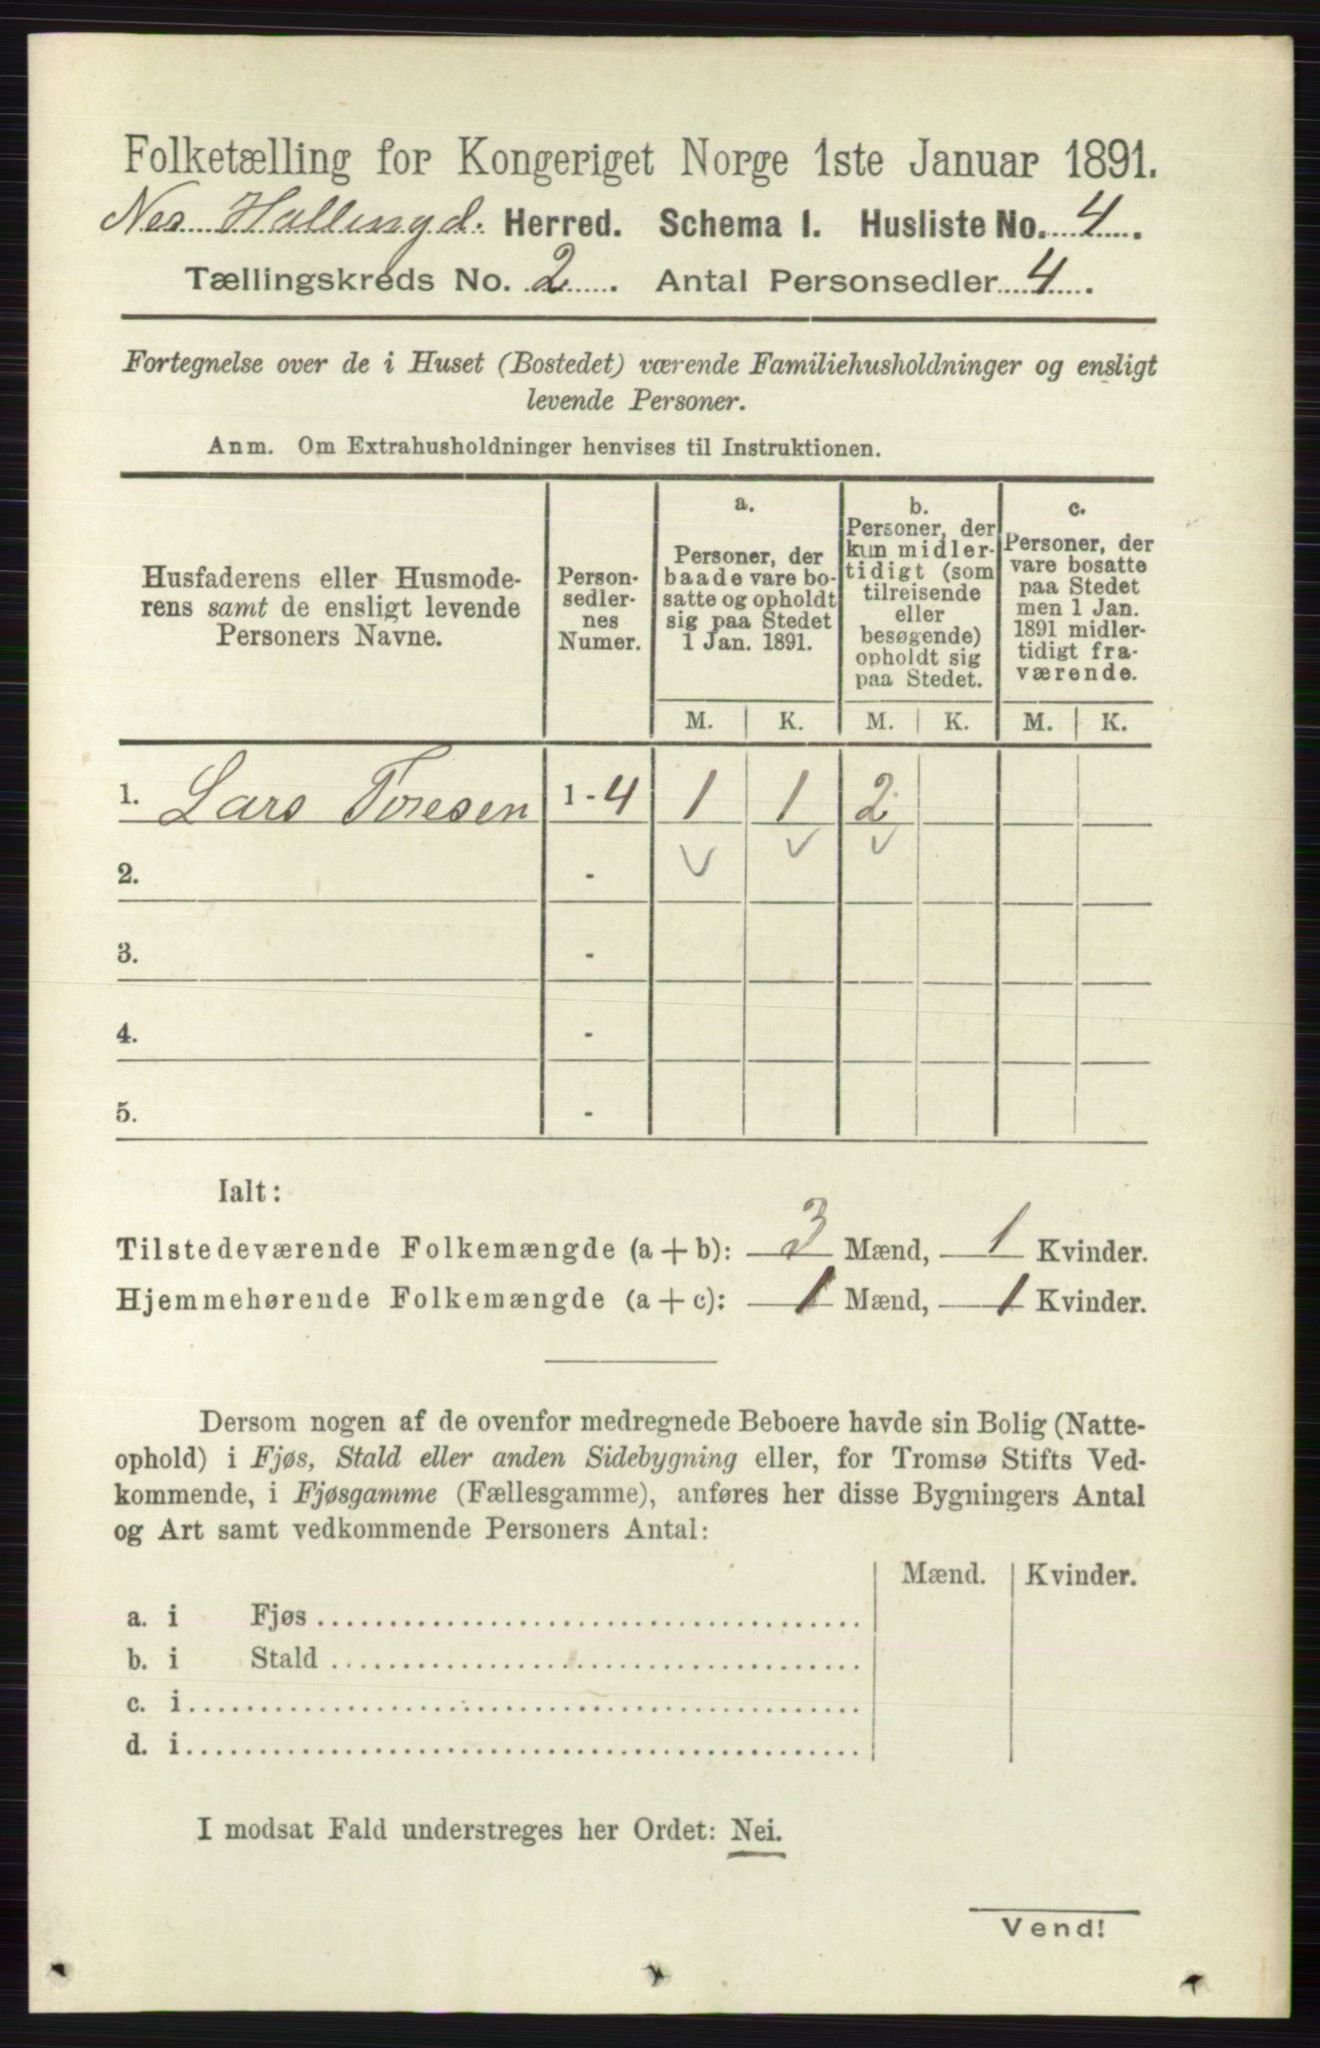 Folketælling for Kongeriget Norge 1ste Januar 1891.
Nes Hallingd. Herred. Schema 1. Husliste No. 4.
Tællingskreds No. 2. Antal Personsedler 4.
Fortegnelse over de i Huset (Bostedet) værende Familiehusholdninger og ensligt
levende Personer.
Anm. Om Extrahusholdninger henvises til Instruktionen.
Husfaderens eller Husmode-
rens samt de ensligt levende
Personers Navne.
Person-
sedler-
nes
Numer.
a.
Personer, der
baade vare bo-
satte og opholdt
sig paa Stedet
1 Jan. 1891.
b.
Personer, der
kun midler-
tidigt (som
tilreisende
eller
besøgende)
opholdt sig
paa Stedet.
c.
Personer, der
vare bosatte
paa Stedet
men 1 Jan.
1891 midler-
tidigt fra-
værende.
M. K. M. K. M. K.
1. Lars Toresen 1-4 1 1 2
2. -
3. -
4. -
5. -
Ialt:
Tilstedeværende Folkemængde (a + b): 3 Mænd, 1 Kvinder.
Hjemmehørende Folkemængde (a + c): 1 Mænd, 1 Kvinder.
Dersom nogen af de ovenfor medregnede Beboere havde sin Bolig (Natte-
ophold) i Fjøs, Stald eller anden Sidebygning eller, for Tromsø Stifts Ved-
kommende, i Fjøsgamme (Fællesgamme), anføres her disse Bygningers Antal
og Art samt vedkommende Personers Antal:
Mænd. Kvinder.
a. i Fjøs
b. i Stald
c. i
d. i
I modsat Fald understreges her Ordet: Nei.
Vend!